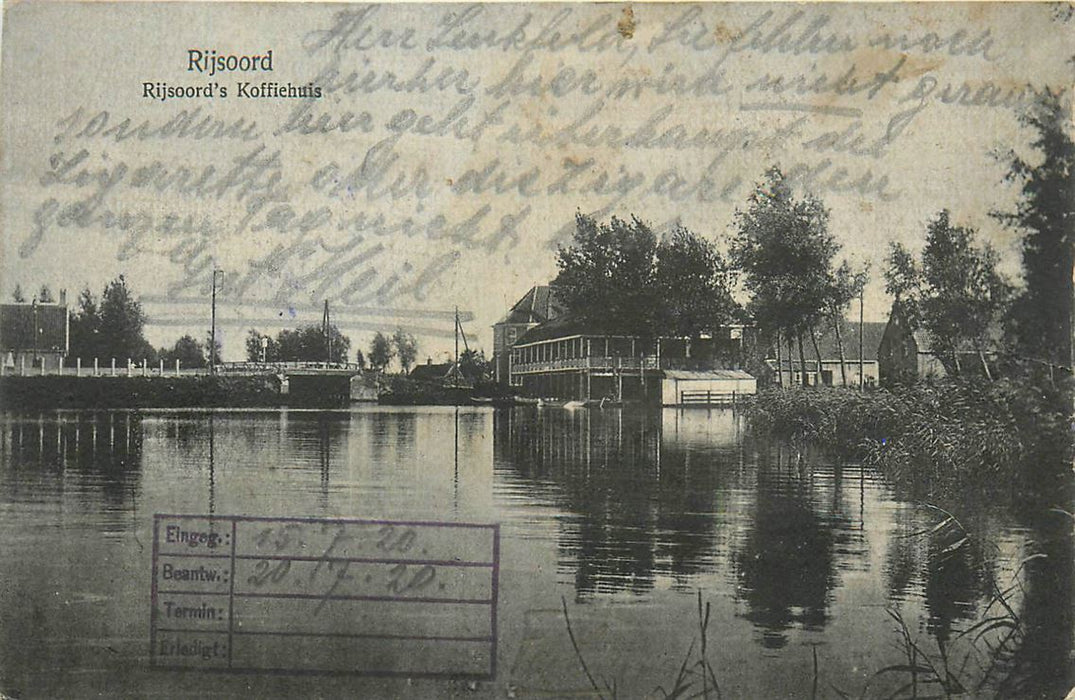 Rijsoord
Rijsoord's Koffiehuis
Herr Lenkfeld, Sie fehlen noch
hierher hier wird nicht geraucht
sondern hier geht überhaupt die
Zigarette oder die Zigarre den
ganzen Tag nicht
Gut Heil
Eingeg.: 15. 7. 20.
Beantw.: 20. 7. 20.
Termin:
Erledigt: